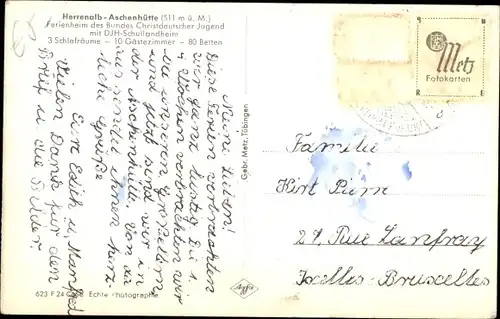 Herrenalb-Aschenhütte (511 m ü. M.)
Ferienheim des Bundes Christdeutscher Jugend
mit DJH-Schullandheim
3 Schlafräume — 10 Gästezimmer — 80 Betten
Meine Lieben!
Diese Ferien verbrachten
wir ganz lustig. Die 1.
4 Wochen verbrachten wir
mit unseren Großeltern
und jetzt sind wir in
der Aschenhütte. Von da
aus sende ihnen herz-
liche Grüße
Eure Edith u. Manfred
Vielen Dank für den
Brief u. die Bilder
Gebr. Metz, Tübingen
Metz
Fotokarten
Familie
Kurt
27, Rue Lanfray
Ixelles-Bruxelles
Agfa
623 F 24 Echte Photographie